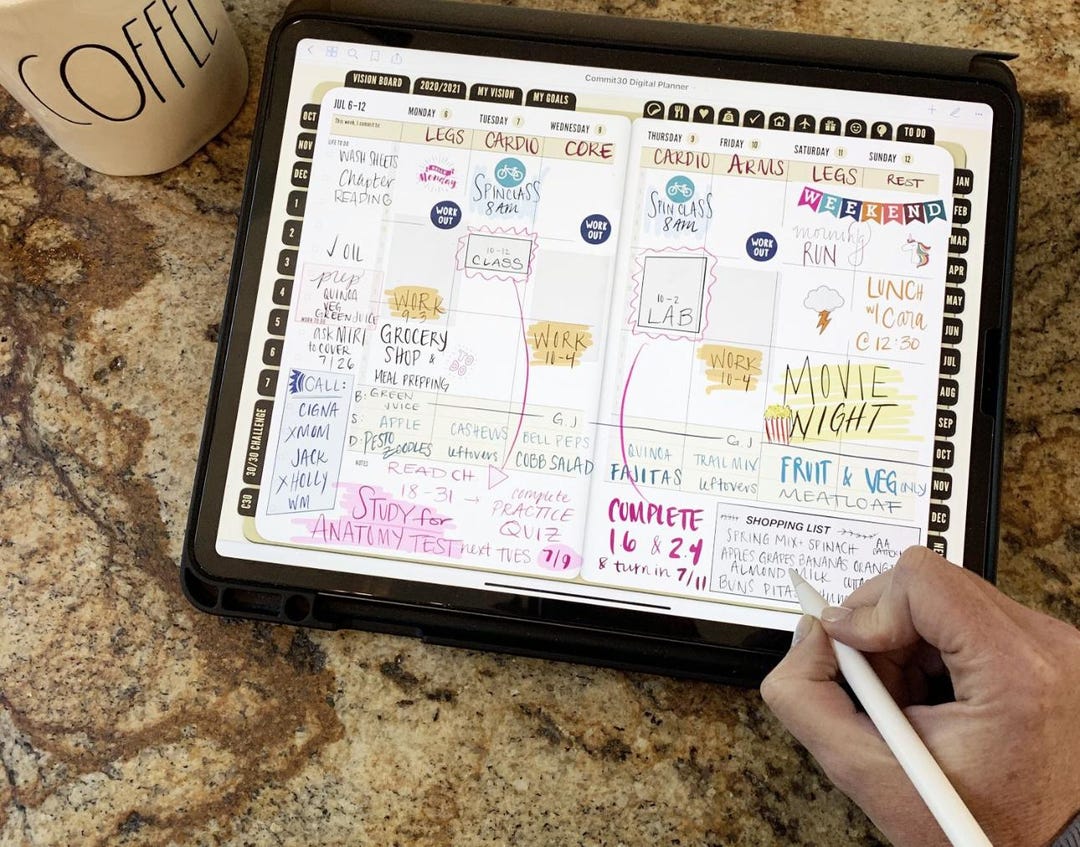 COFFEE
Commit30 Digital Planner
VISION BOARD
2020/2021
MY VISION
MY GOALS
TO DO
OCT
NOV
DEC
1
2
3
4
5
6
7
30/30 CHALLENGE
C30
JUL 6-12
This week, I commit to:
LIFE TO DO
WASH SHEETS
Chapter
READING
✓ OIL
prep
QUINOA
VEG
GREEN JUICE
WORK TO DO
ask MIRI
to COVER
7/26
CALL:
CIGNA
x MOM
JACK
x HOLLY
WM
MONDAY 6
LEGS
HELLO
Monday
WORK
OUT
WORK
9-3
GROCERY
SHOP &
MEAL PREPPING
TO
DO
TUESDAY 7
CARDIO
SPIN CLASS
8 AM
10-12
CLASS
WEDNESDAY 8
CORE
WORK
OUT
WORK
10-4
B: GREEN
JUICE
G.J
S: APPLE
CASHEWS
BELL PEPS
D: PESTO
ZOODLES
leftovers
COBB SALAD
NOTES
READ CH
18-31 →
complete
PRACTICE
QUIZ
STUDY for
ANATOMY TEST next TUES 7/9
THURSDAY 9
CARDIO
SPIN CLASS
8 AM
10-2
LAB
FRIDAY 10
ARMS
WORK
OUT
WORK
10-4
SATURDAY 11
LEGS
WEEKEND
morning
RUN
SUNDAY 12
REST
LUNCH
w/ Cara
@ 12:30
MOVIE
NIGHT
G.J
QUINOA
FAJITAS
TRAIL MIX
leftovers
FRUIT & VEG ONLY
MEATLOAF
COMPLETE
1.6 & 2.4
& turn in 7/11
SHOPPING LIST
SPRING MIX + SPINACH
AA
APPLES GRAPES BANANAS
ALMOND MILK
BUNS PITAS
JAN
FEB
MAR
APR
MAY
JUN
JUL
AUG
SEP
OCT
NOV
DEC